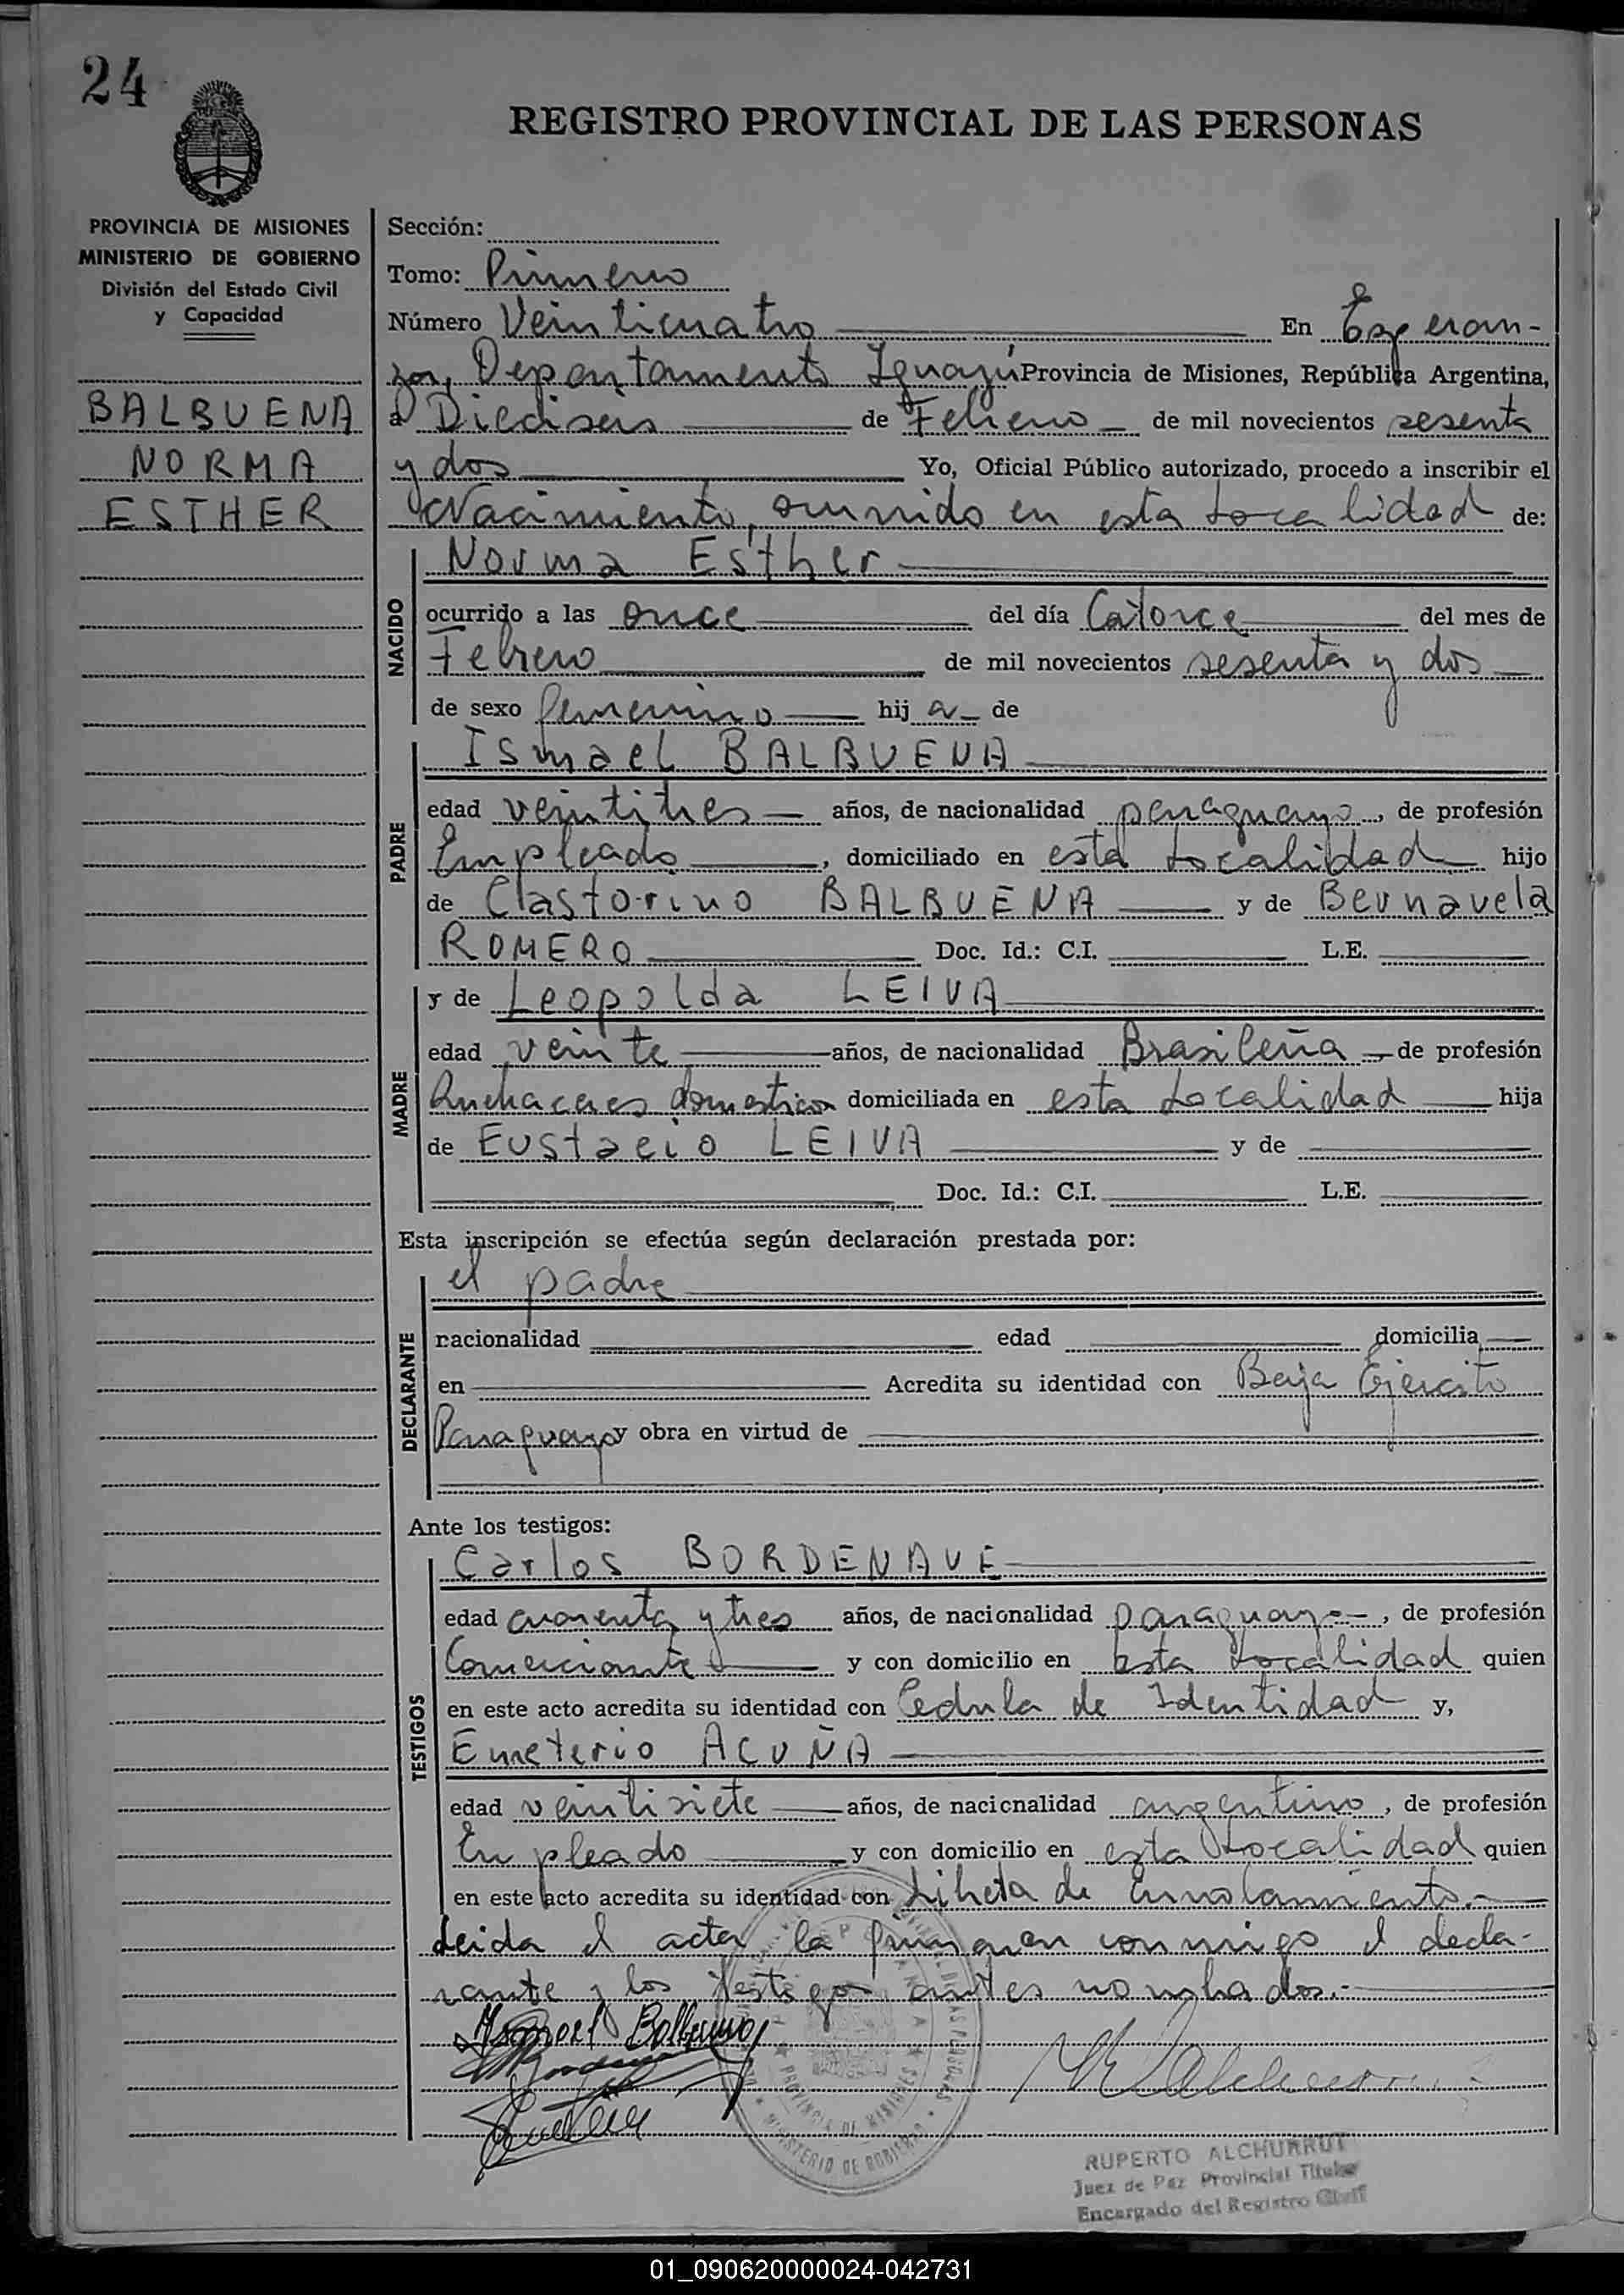 24
REGISTRO PROVINCIAL DE LAS PERSONAS
PROVINCIA DE MISIONES
MINISTERIO DE GOBIERNO
División del Estado Civil
y Capacidad
BALBUENA
NORMA
ESTHER
Sección:
Tomo: Primero
Número Veinticuatro En Esperan-
za, Departamento Iguazú Provincia de Misiones, República Argentina,
a Dieciseis de Febrero de mil novecientos sesenta
y dos Yo, Oficial Público autorizado, procedo a inscribir el
Nacimiento, ocurrido en esta Localidad de:
NACIDO
Norma Esther
ocurrido a las once del día Catorce del mes de
Febrero de mil novecientos sesenta y dos
de sexo femenino hij a de
PADRE
Ismael BALBUENA
edad veintitres años, de nacionalidad paraguayo, de profesión
Empleado, domiciliado en esta Localidad hijo
de Clastorino BALBUENA y de Bernavela
ROMERO Doc. Id.: C.I. L.E.
MADRE
y de Leopolda LEIVA
edad veinte años, de nacionalidad Brasileña de profesión
Quehaceres domesticos domiciliada en esta Localidad hija
de Eustacio LEIVA y de
Doc. Id.: C.I. L.E.
Esta inscripción se efectúa según declaración prestada por:
DECLARANTE
el padre
nacionalidad edad domicilia
en Acredita su identidad con Baja Ejercito
Paraguayo y obra en virtud de
Ante los testigos:
TESTIGOS
Carlos BORDENAVE
edad cuarenta y tres años, de nacionalidad paraguayo, de profesión
Comerciante y con domicilio en esta Localidad quien
en este acto acredita su identidad con Cedula de Identidad y,
Emeterio ACUÑA
edad veintisiete años, de nacionalidad argentino, de profesión
Empleado y con domicilio en esta Localidad quien
en este acto acredita su identidad con Libreta de Enrolamiento.-
Leida el acta, la firman con migo el decla-
rante y los testigos antes nombrados.-
Ismael Balbuena
PROVINCIA DE MISIONES
MINISTERIO DE GOBIERNO
RUPERTO ALCHURRUT
Juez de Paz Provincial Titular
Encargado del Registro Civil
01_090620000024-042731